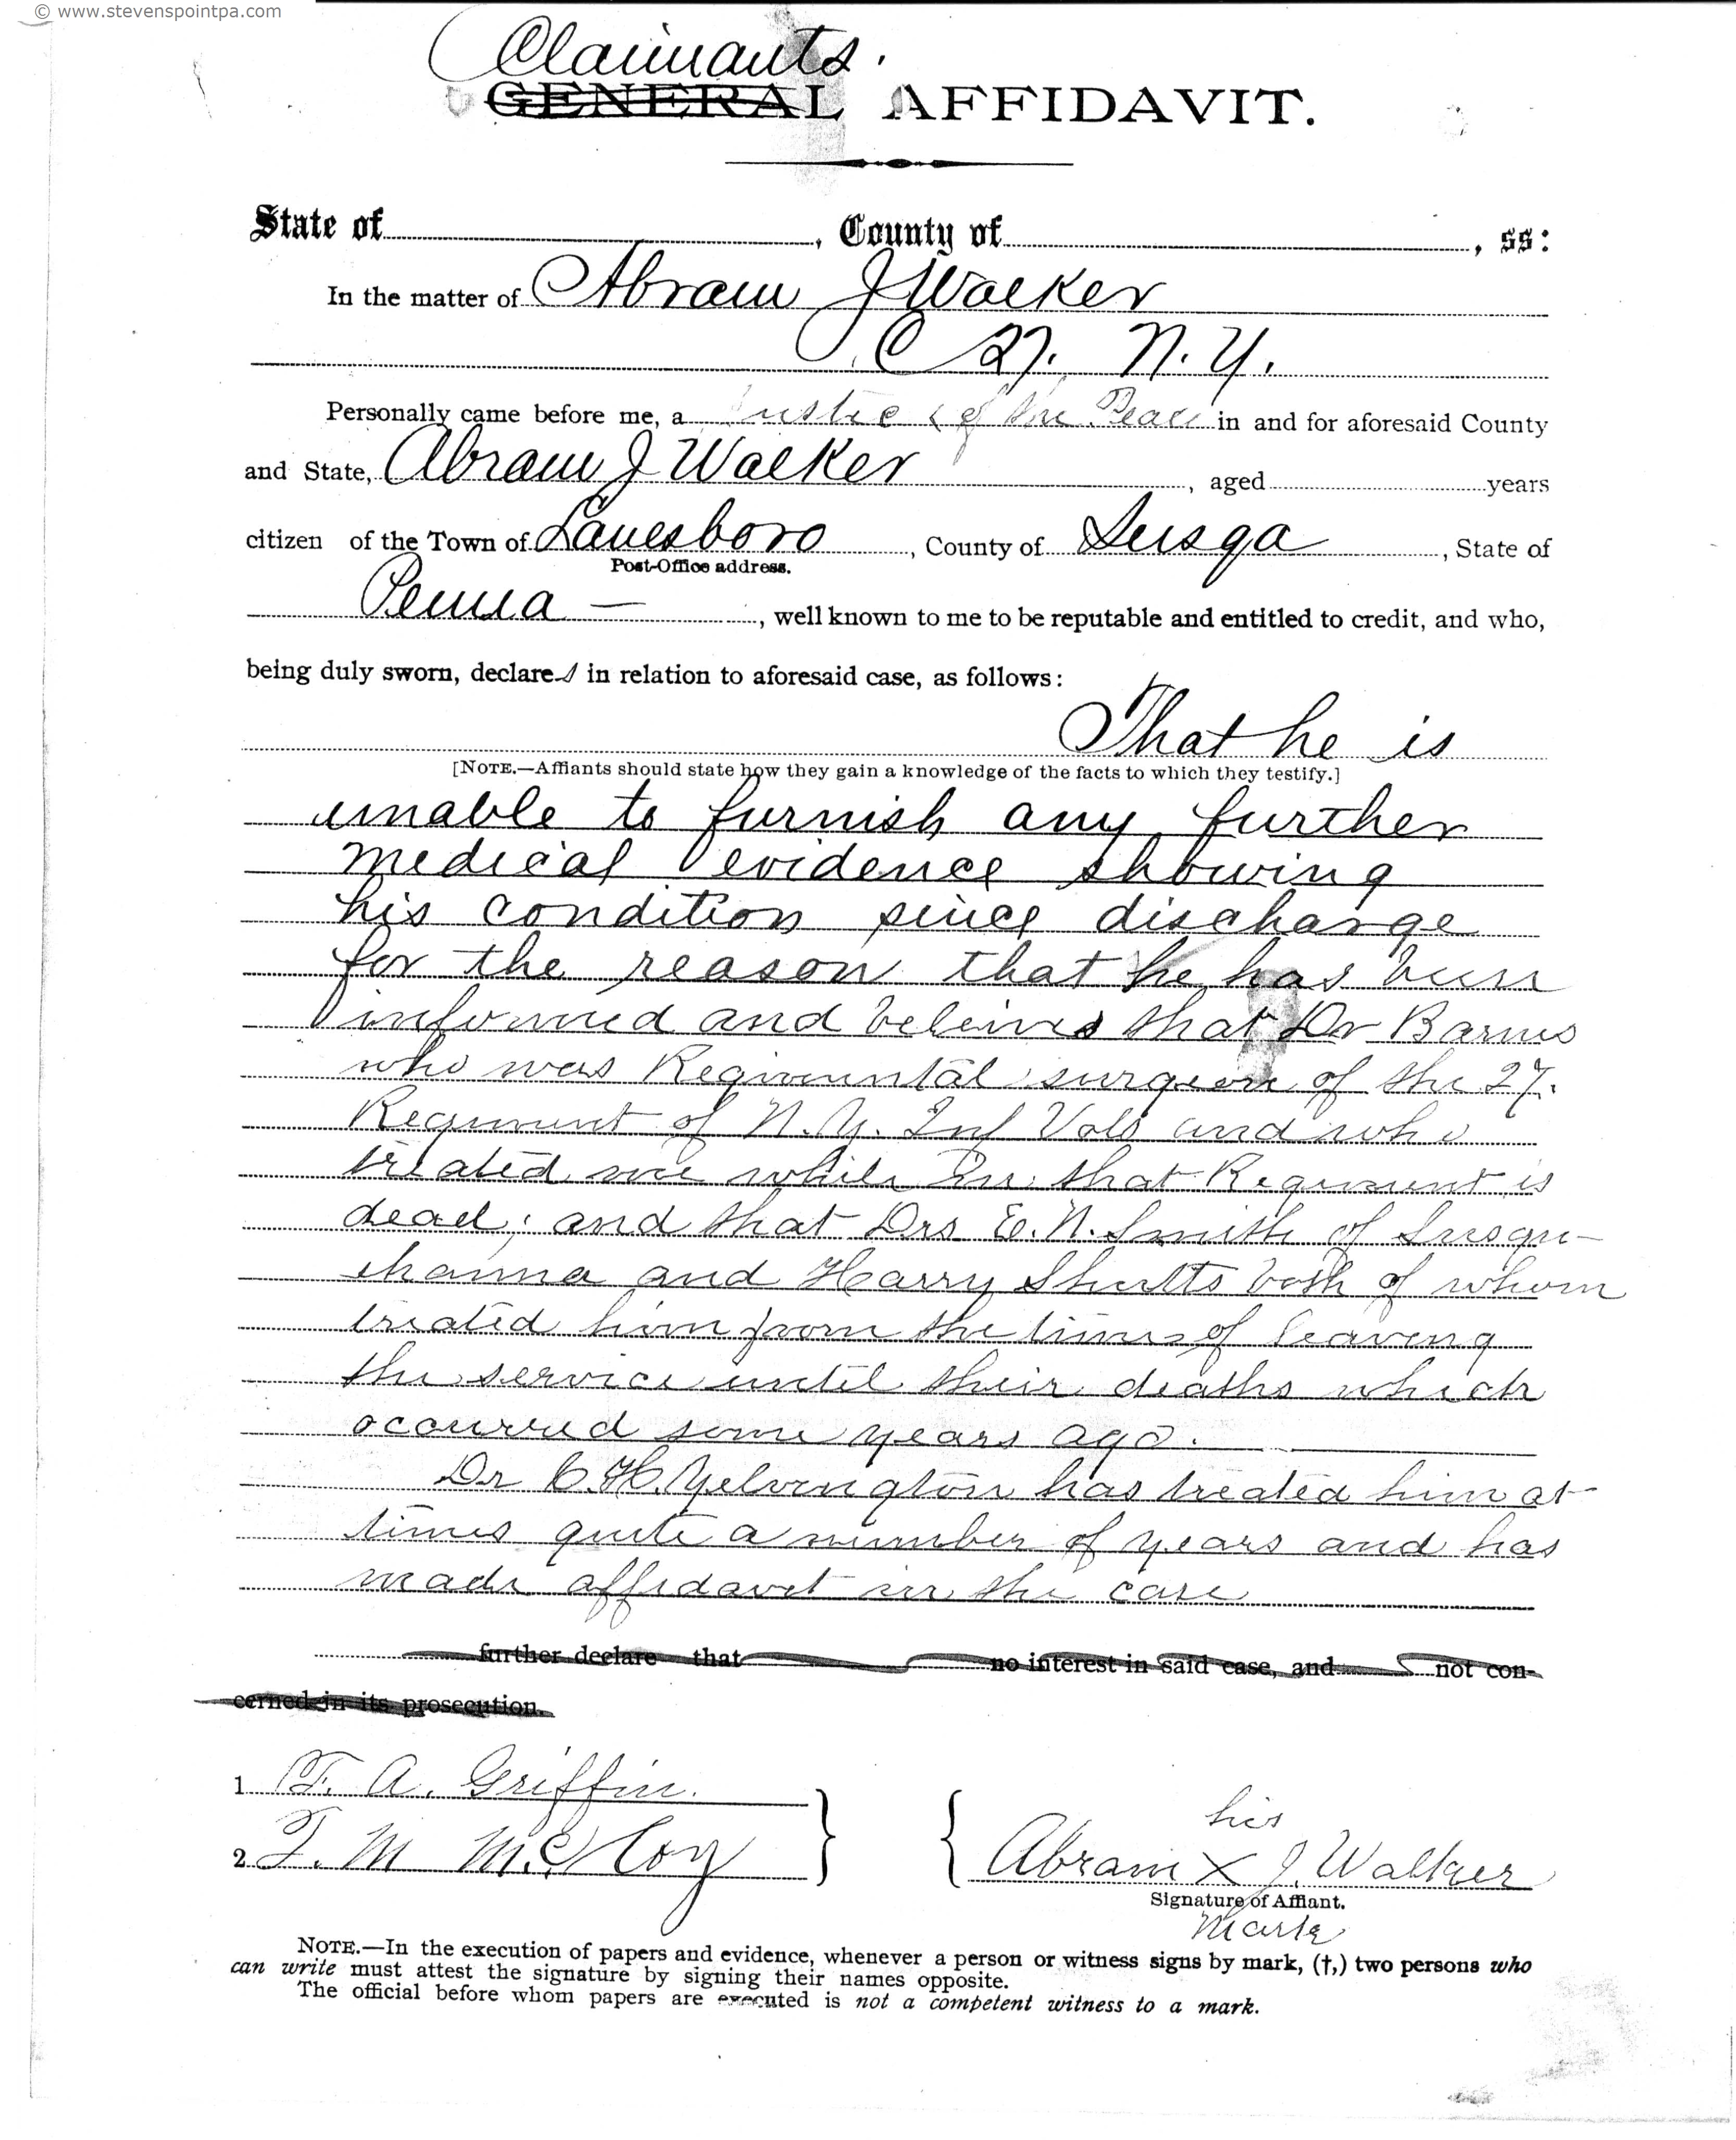 © www.stevenspointpa.com
Claimants.
GENERAL AFFIDAVIT.
State of , County of , ss:
In the matter of Abram J Walker
C 27. N. Y.
Personally came before me, a Justice of the Peace in and for aforesaid County
and State, Abram J Walker , aged years
citizen of the Town of Lanesboro , County of Susqa , State of
Post-Office address.
Penna — , well known to me to be reputable and entitled to credit, and who,
being duly sworn, declared in relation to aforesaid case, as follows:
That he is
[NOTE.—Affiants should state how they gain a knowledge of the facts to which they testify.]
unable to furnish any further
medical evidence showing
his condition since discharge
for the reason that he has been
informed and beleives that Dr Barnes
who was Regimental surgeon of the 27.
Regiment of N. Y. Inf Vols and who
treated me while in that Regiment is
dead; and that Drs E. N. Smith of Susqu-
ehanna and Harry Shutts both of whom
treated him from the time of leaving
the service until their deaths which
ocurred some years ago.
Dr C. H. Yelvington has treated him at
times quite a number of years and has
made affidavit in the case
further declare that no interest in said case, and not con-
cerned in its prosecution.
1 F. A. Griffin.
his
2 T. M McCoy
Abram X J. Walker
Signature of Affiant.
Mark
NOTE.—In the execution of papers and evidence, whenever a person or witness signs by mark, (†,) two persons who
can write must attest the signature by signing their names opposite.
The official before whom papers are executed is not a competent witness to a mark.